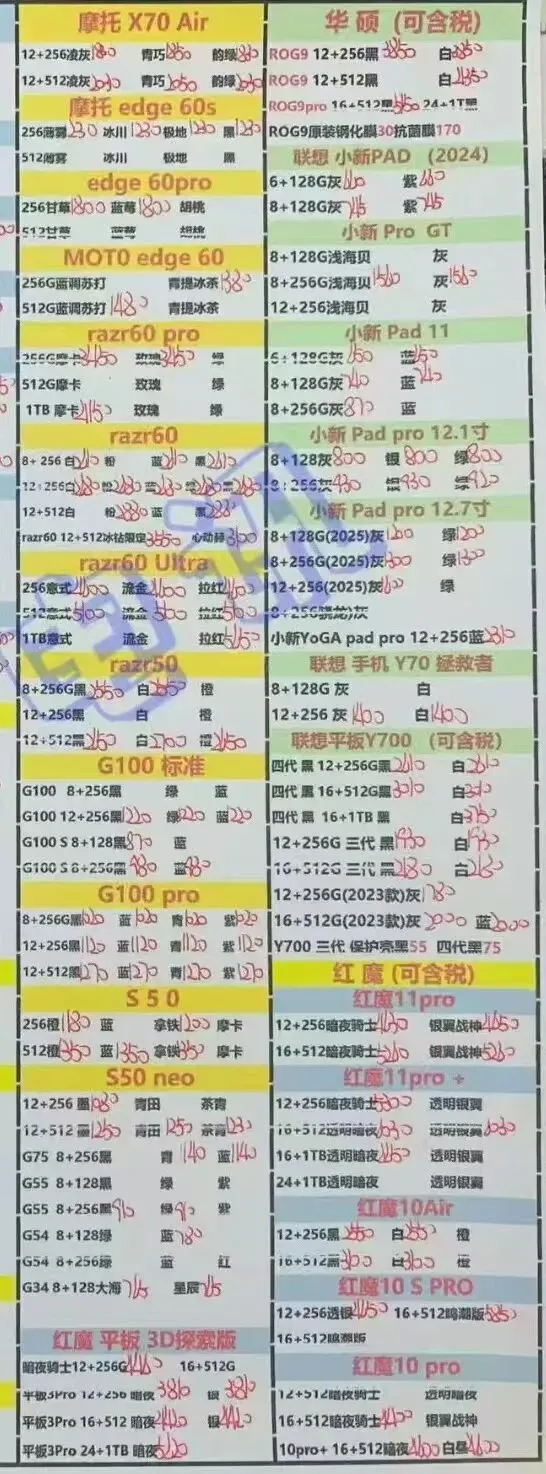 摩托 X70 Air
12+256凌灰 青巧 韵绿
12+512凌灰 青巧 韵绿
摩托 edge 60s
256薄雾 1230 冰川 1230 极地 1230 黑 1230
512薄雾 冰川 极地 黑
edge 60pro
256甘草 1800 蓝莓 1800 胡桃
512甘草 蓝莓 胡桃
MOTO edge 60
256G蓝调苏打 青提冰茶 1380
512G蓝调苏打 1480 青提冰茶
razr60 pro
256G摩卡 3450 玫瑰 3450 绿
512G摩卡 玫瑰 绿
1TB 摩卡 玫瑰 绿
razr60
8+256 白 粉 蓝 黑
12+256白 粉 蓝 绿 黑
12+512白 粉 蓝 黑
razr60 12+512冰钻限定 心动赫
razr60 Ultra
256意式 流金 拉红
512意式 流金 拉红
1TB意式 流金 拉红
razr50
8+256G黑 白 橙
12+256黑 白 橙
12+512黑 白 2700 橙
G100 标准
G100 8+256黑 绿 蓝
G100 12+256黑 1220 绿 1220 蓝 1220
G100 S 8+128黑 870 蓝
G100 S 8+256黑 980 蓝 980
G100 pro
8+256G黑 1020 蓝 1020 青 1020 紫 1020
12+256黑 1120 蓝 1120 青 1120 紫 1120
12+512黑 1270 蓝 1270 青 1270 紫 1270
S50
256橙 1180 蓝 拿铁 1200 摩卡
512橙 1350 蓝 1350 拿铁 1350 摩卡
S50 neo
12+256 墨 1080 青田 茶青
12+512 墨 1250 青田 1250 茶青 1230
G75 8+256黑 青 1140 蓝 1140
G55 8+128黑 绿 紫
G55 8+256黑 910 绿 910 紫
G54 8+128绿 蓝 780
G54 8+256绿 蓝 红
G34 8+128大海 715 星辰 715
红魔 平板 3D探索版
暗夜骑士12+256G 16+512G
平板3Pro 12+256 暗夜 3810 银 3810
平板3Pro 16+512 暗夜 4420 银 4420
平板3Pro 24+1TB 暗夜
华 硕 (可含税)
ROG9 12+256黑 3850 白 3850
ROG9 12+512黑 白 4350
ROG9pro 16+512黑 24+1T黑
ROG9原装钢化膜30抗菌膜170
联想 小新PAD (2024)
6+128G灰 紫
8+128G灰 745 紫 745
小新 Pro GT
8+128G浅海贝 灰
8+256G浅海贝 1560 灰 1560
12+256浅海贝 灰
小新 Pad 11
6+128G灰 蓝
8+128G灰 740 蓝 740
8+256G灰 870 蓝
小新 Pad pro 12.1寸
8+128灰 800 银 800 绿 800
8+256灰 930 银 930 绿 920
小新 Pad pro 12.7寸
8+128G(2025)灰 1200 绿 1200
8+256G(2025)灰 1300 绿 1300
12+256(2025)灰 绿
8+256骁龙)灰
小新YoGA pad pro 12+256蓝
联想 手机 Y70 拯救者
8+128G 灰 白
12+256 灰 1400 白 1400
联想平板Y700 (可含税)
四代 黑 12+256G黑 2610 白 2610
四代 黑 16+512G黑 3010 白
四代 黑 16+1TB 黑 白
12+256G 三代 黑 1930 白 1930
16+512G 三代 黑 2180 白
12+256G(2023款)灰 1780
16+512G(2023款)灰 2000 蓝 2000
Y700 三代 保护亮黑55 四代黑75
红 魔 (可含税)
红魔11pro
12+256暗夜骑士 银翼战神
16+512暗夜骑士 5260 银翼战神 5260
红魔11pro +
12+256暗夜骑士 5300 透明银翼
16+512透明暗夜 透明银翼
16+1TB透明暗夜 透明银翼
24+1TB透明暗夜 透明银翼
红魔10Air
12+256黑 2550 白 2550 橙
16+512黑 3100 白 3100 橙
红魔10 S PRO
12+256透银 16+512鸣潮版
16+512鸣潮版
红魔10 pro
12+512暗夜骑士 透明暗夜
16+512暗夜骑士 4400 银翼战神
10pro+ 16+512暗夜 4600 白昼 4600